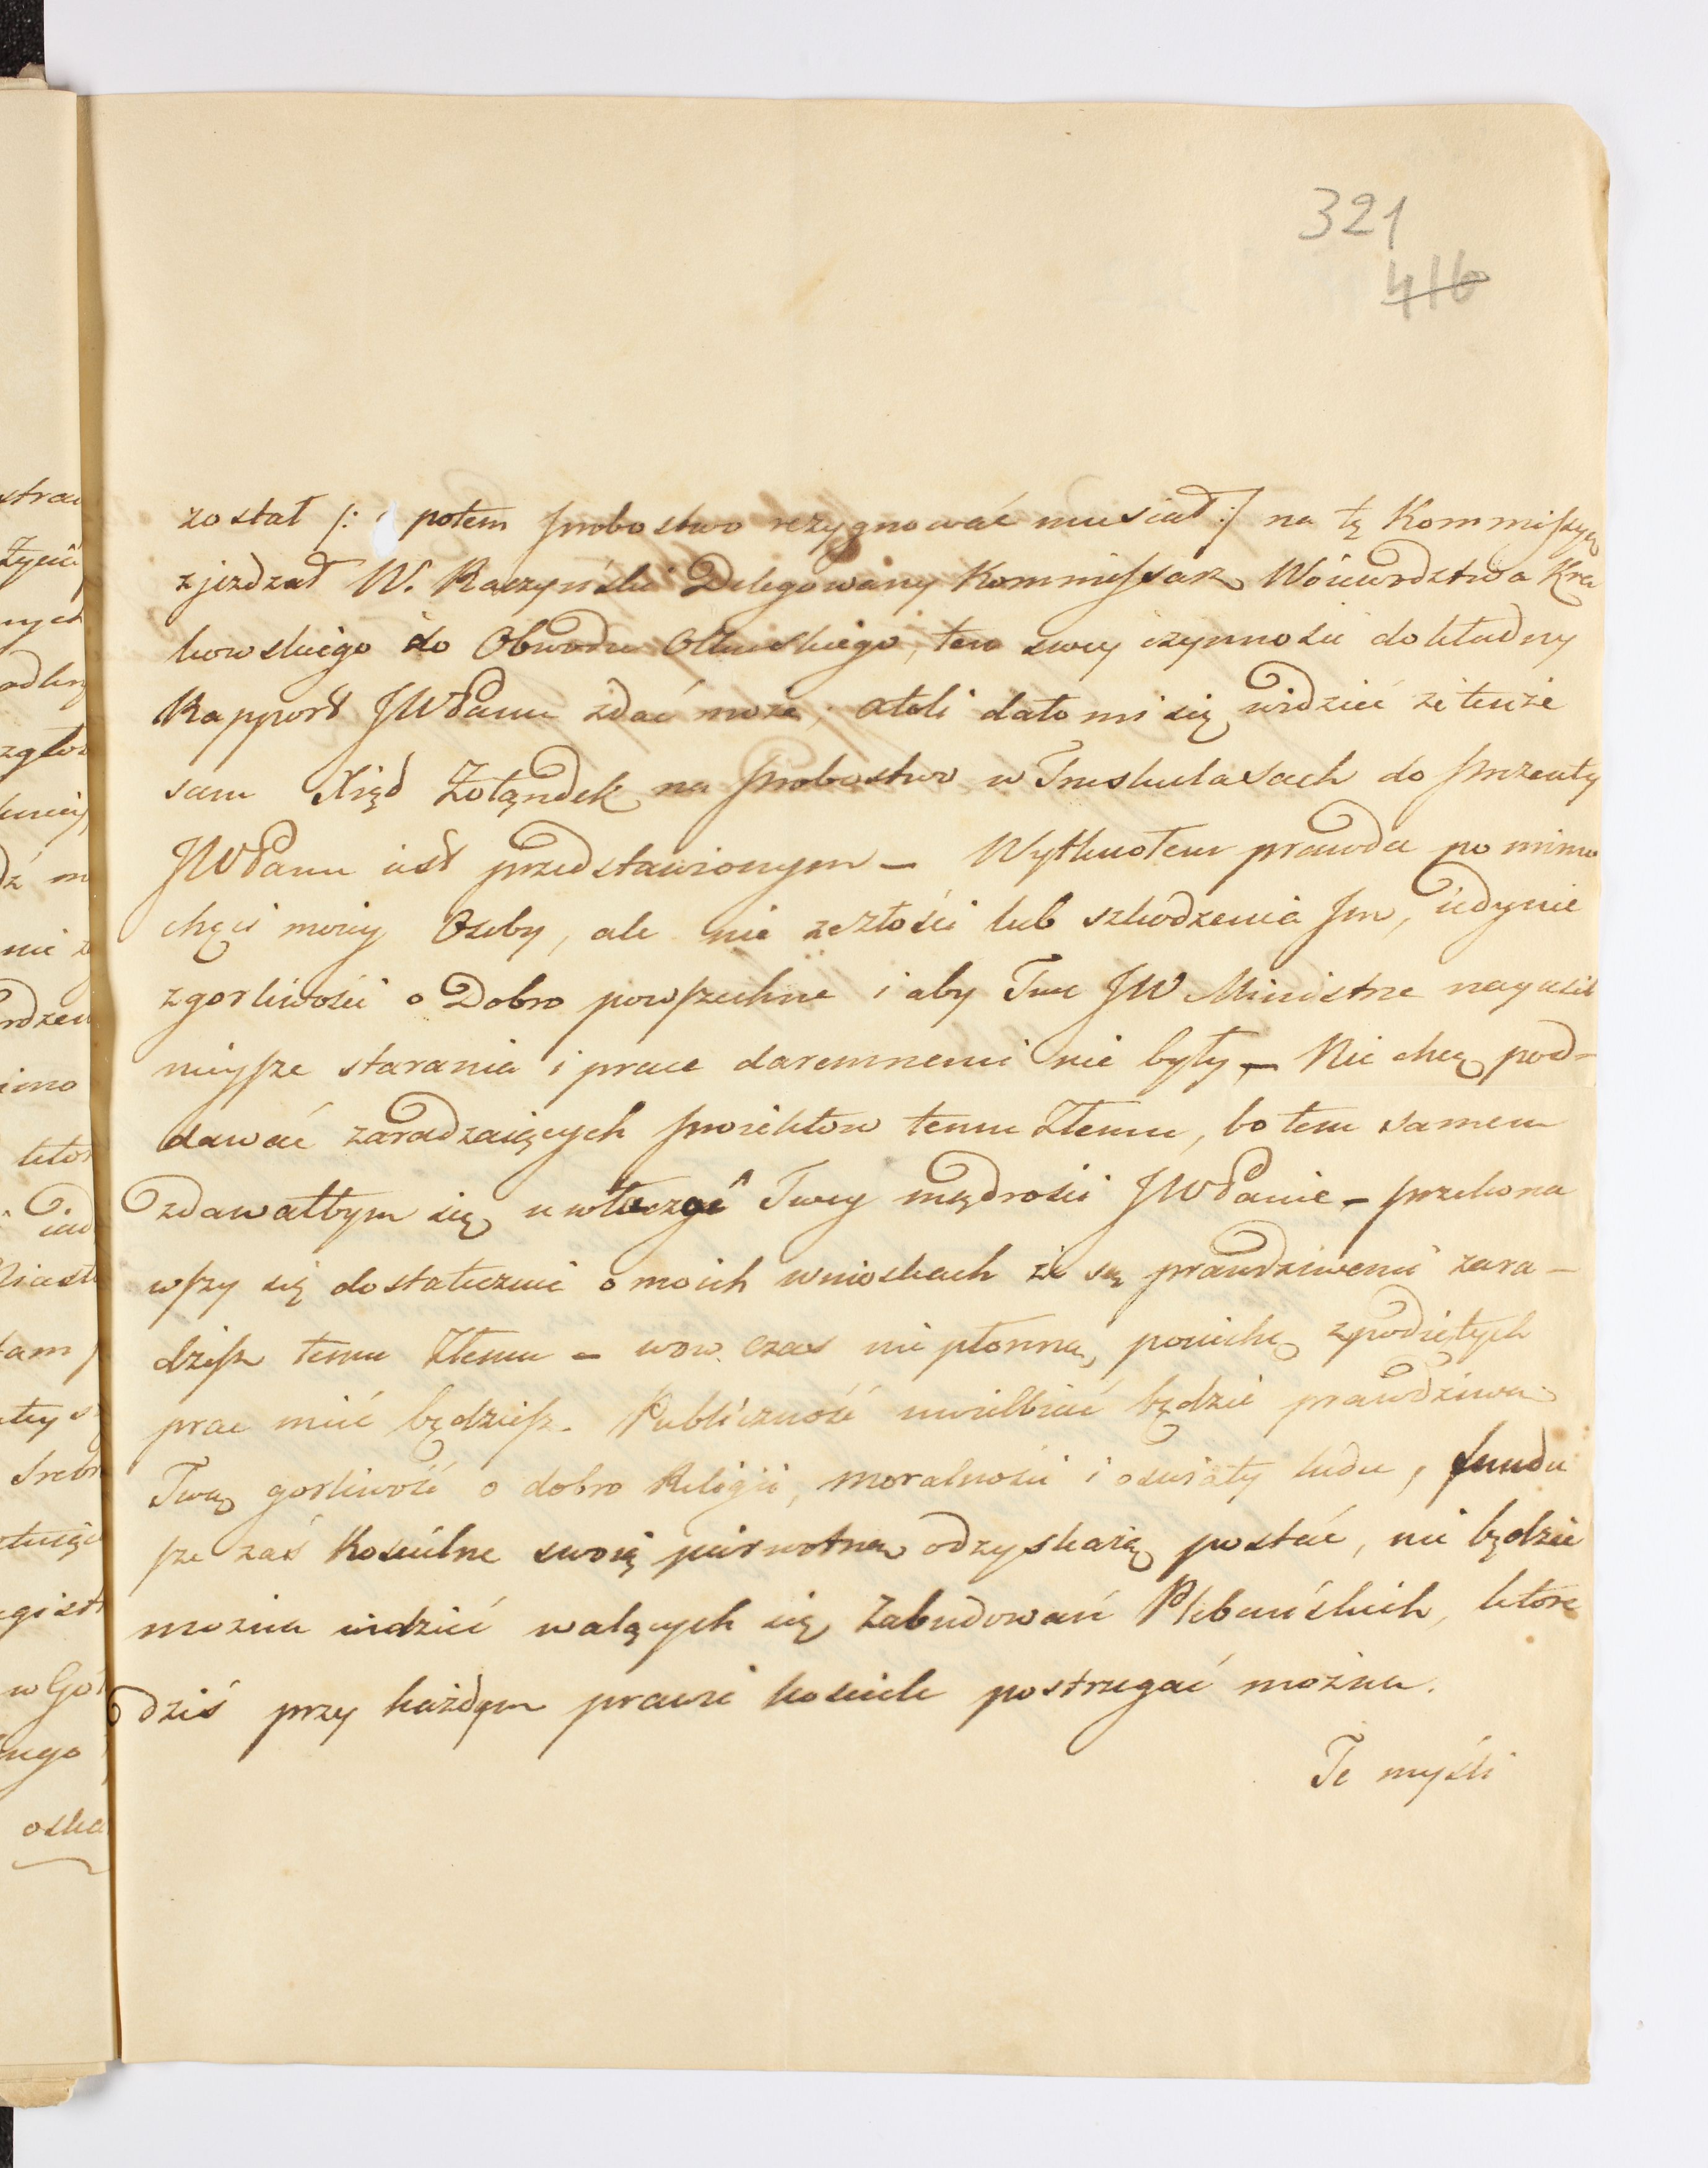 321
416
został /: i potem probostwo rezygnować musiał :/ na tę Kommissyą
zjezdzał W. Raczyński Delegowany Kommissarz Woiewodztwa Kra
kowskiego do Obwodu Olkuskiego, ten swey czynności dokładny
Rapport JWPanu zdać może, atoli dało mi się widzieć że tenże
sam Xiąd Zołąndek na probostwo w Truskulasach do prezenty
JWPanu iest przedstawionym – Wytknołem prawda po mimo
chęci moiey Osoby, ale nie ze złości lub szkodzenia Im, iedynie
z gorliwości o Dobro powszechne i aby Twe JW Ministrze nayusil
nieysze starania i prace daremnemi nie były – Nie chcę pod-
dawać zaradzaiących proiektow temu Złemu, bo tem samem
zdawałbym się uwłaczać Twey mądrości JWPanie – przekona
wszy się dostatecznie o moich wnioskach że są prawdziwemi zara-
dzisz temu Złemu – wow czas nie płonną, pociechę z podiętych
prac mieć będziesz. Publiczność uwielbiać będzie prawdziwą
Twą gorliwość o dobro Religii, moralności i oswiaty ludu, fundu
sze zaś Kościelne swoią pierwotną odzyskaią postać, nie będzie
można widzieć walących się Zabudowań Plebańskich, które
dziś przy każdym prawie kościele postrzegać można.
Te myśli